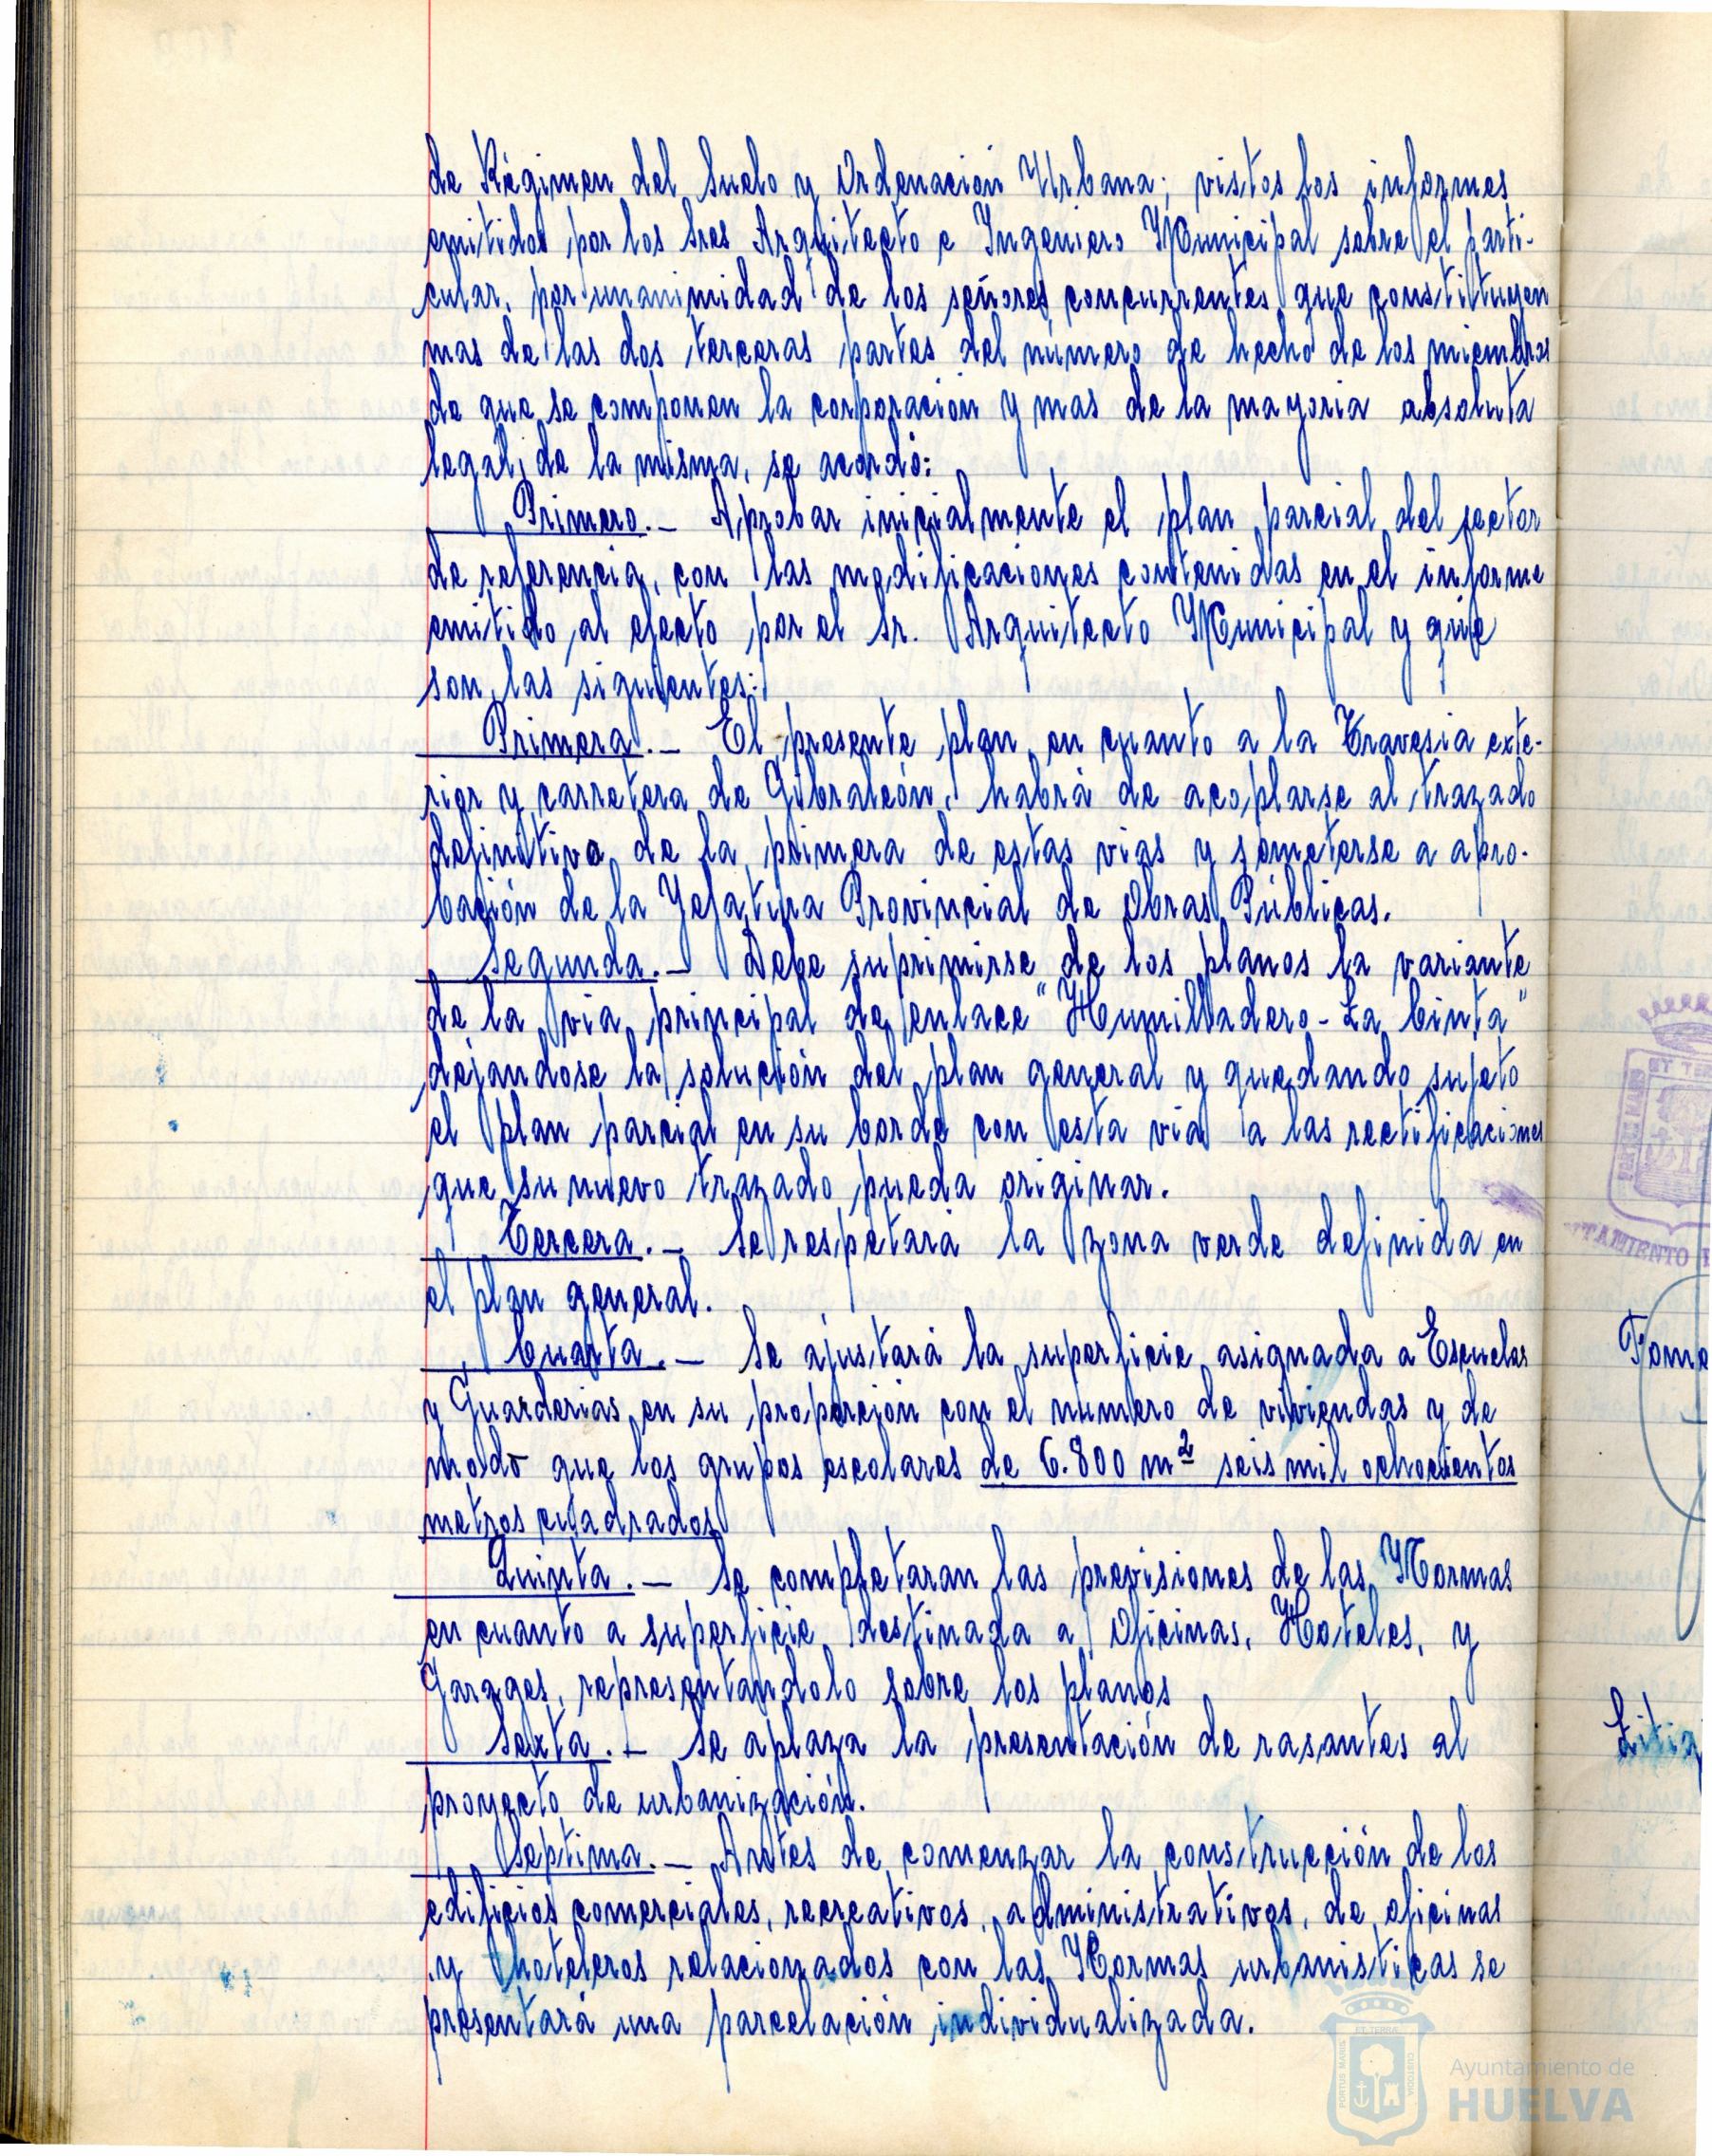 de Régimen del Suelo y Ordenación Urbana; vistos los informes
emitidos por los Sres Arquitecto e Ingeniero Municipal sobre el parti-
cular, por unanimidad de los señores concurrentes que constituyen
mas de las dos terceras partes del número de hecho de los miembros
de que se componen la corporación y mas de la mayoria absoluta
legal, de la misma, se acordó:
Primero.- Aprobar inicialmente el plan parcial del sector
de referencia, con las modificaciones contenidas en el informe
emitido al efecto por el Sr. Arquitecto Municipal y que
son las siguientes:
Primera.- El presente plan en cuanto a la Travesia exte-
rior y carretera de Gibraleón, habrá de acoplarse al trazado
definitivo de la primera de estas vias y someterse a apro-
bación de la Jefatura Provincial de Obras Públicas.
Segunda.- Debe suprimirse de los planos la variante
de la via principal de enlace "Humilladero-La Cinta"
dejandose la solución del plan general y quedando sujeto
el plan parcial en su borde con esta via a las rectificaciones
que su nuevo trazado pueda originar.
Tercera.- Se respetará la zona verde definida en
el plan general.
Cuarta.- Se ajustará la superficie asignada a Escuelas
y Guarderias en su proporción con el numero de viviendas y de
modo que los grupos escolares de 6.800 m² seis mil ochocientos
metros cuadrados
Quinta.- Se completaran las previsiones de las Normas
en cuanto a superficie destinada a Oficinas, Hoteles, y
Garages, representandolo sobre los planos
Sexta.- Se aplaza la presentación de rasantes al
proyecto de urbanización.
Septima.- Antes de comenzar la construcción de los
edificios comerciales, recreativos, administrativos, de oficinas
y hoteleros relacionados con las Normas urbanisticas se
presentará una parcelación individualizada.
Ayuntamiento de
HUELVA